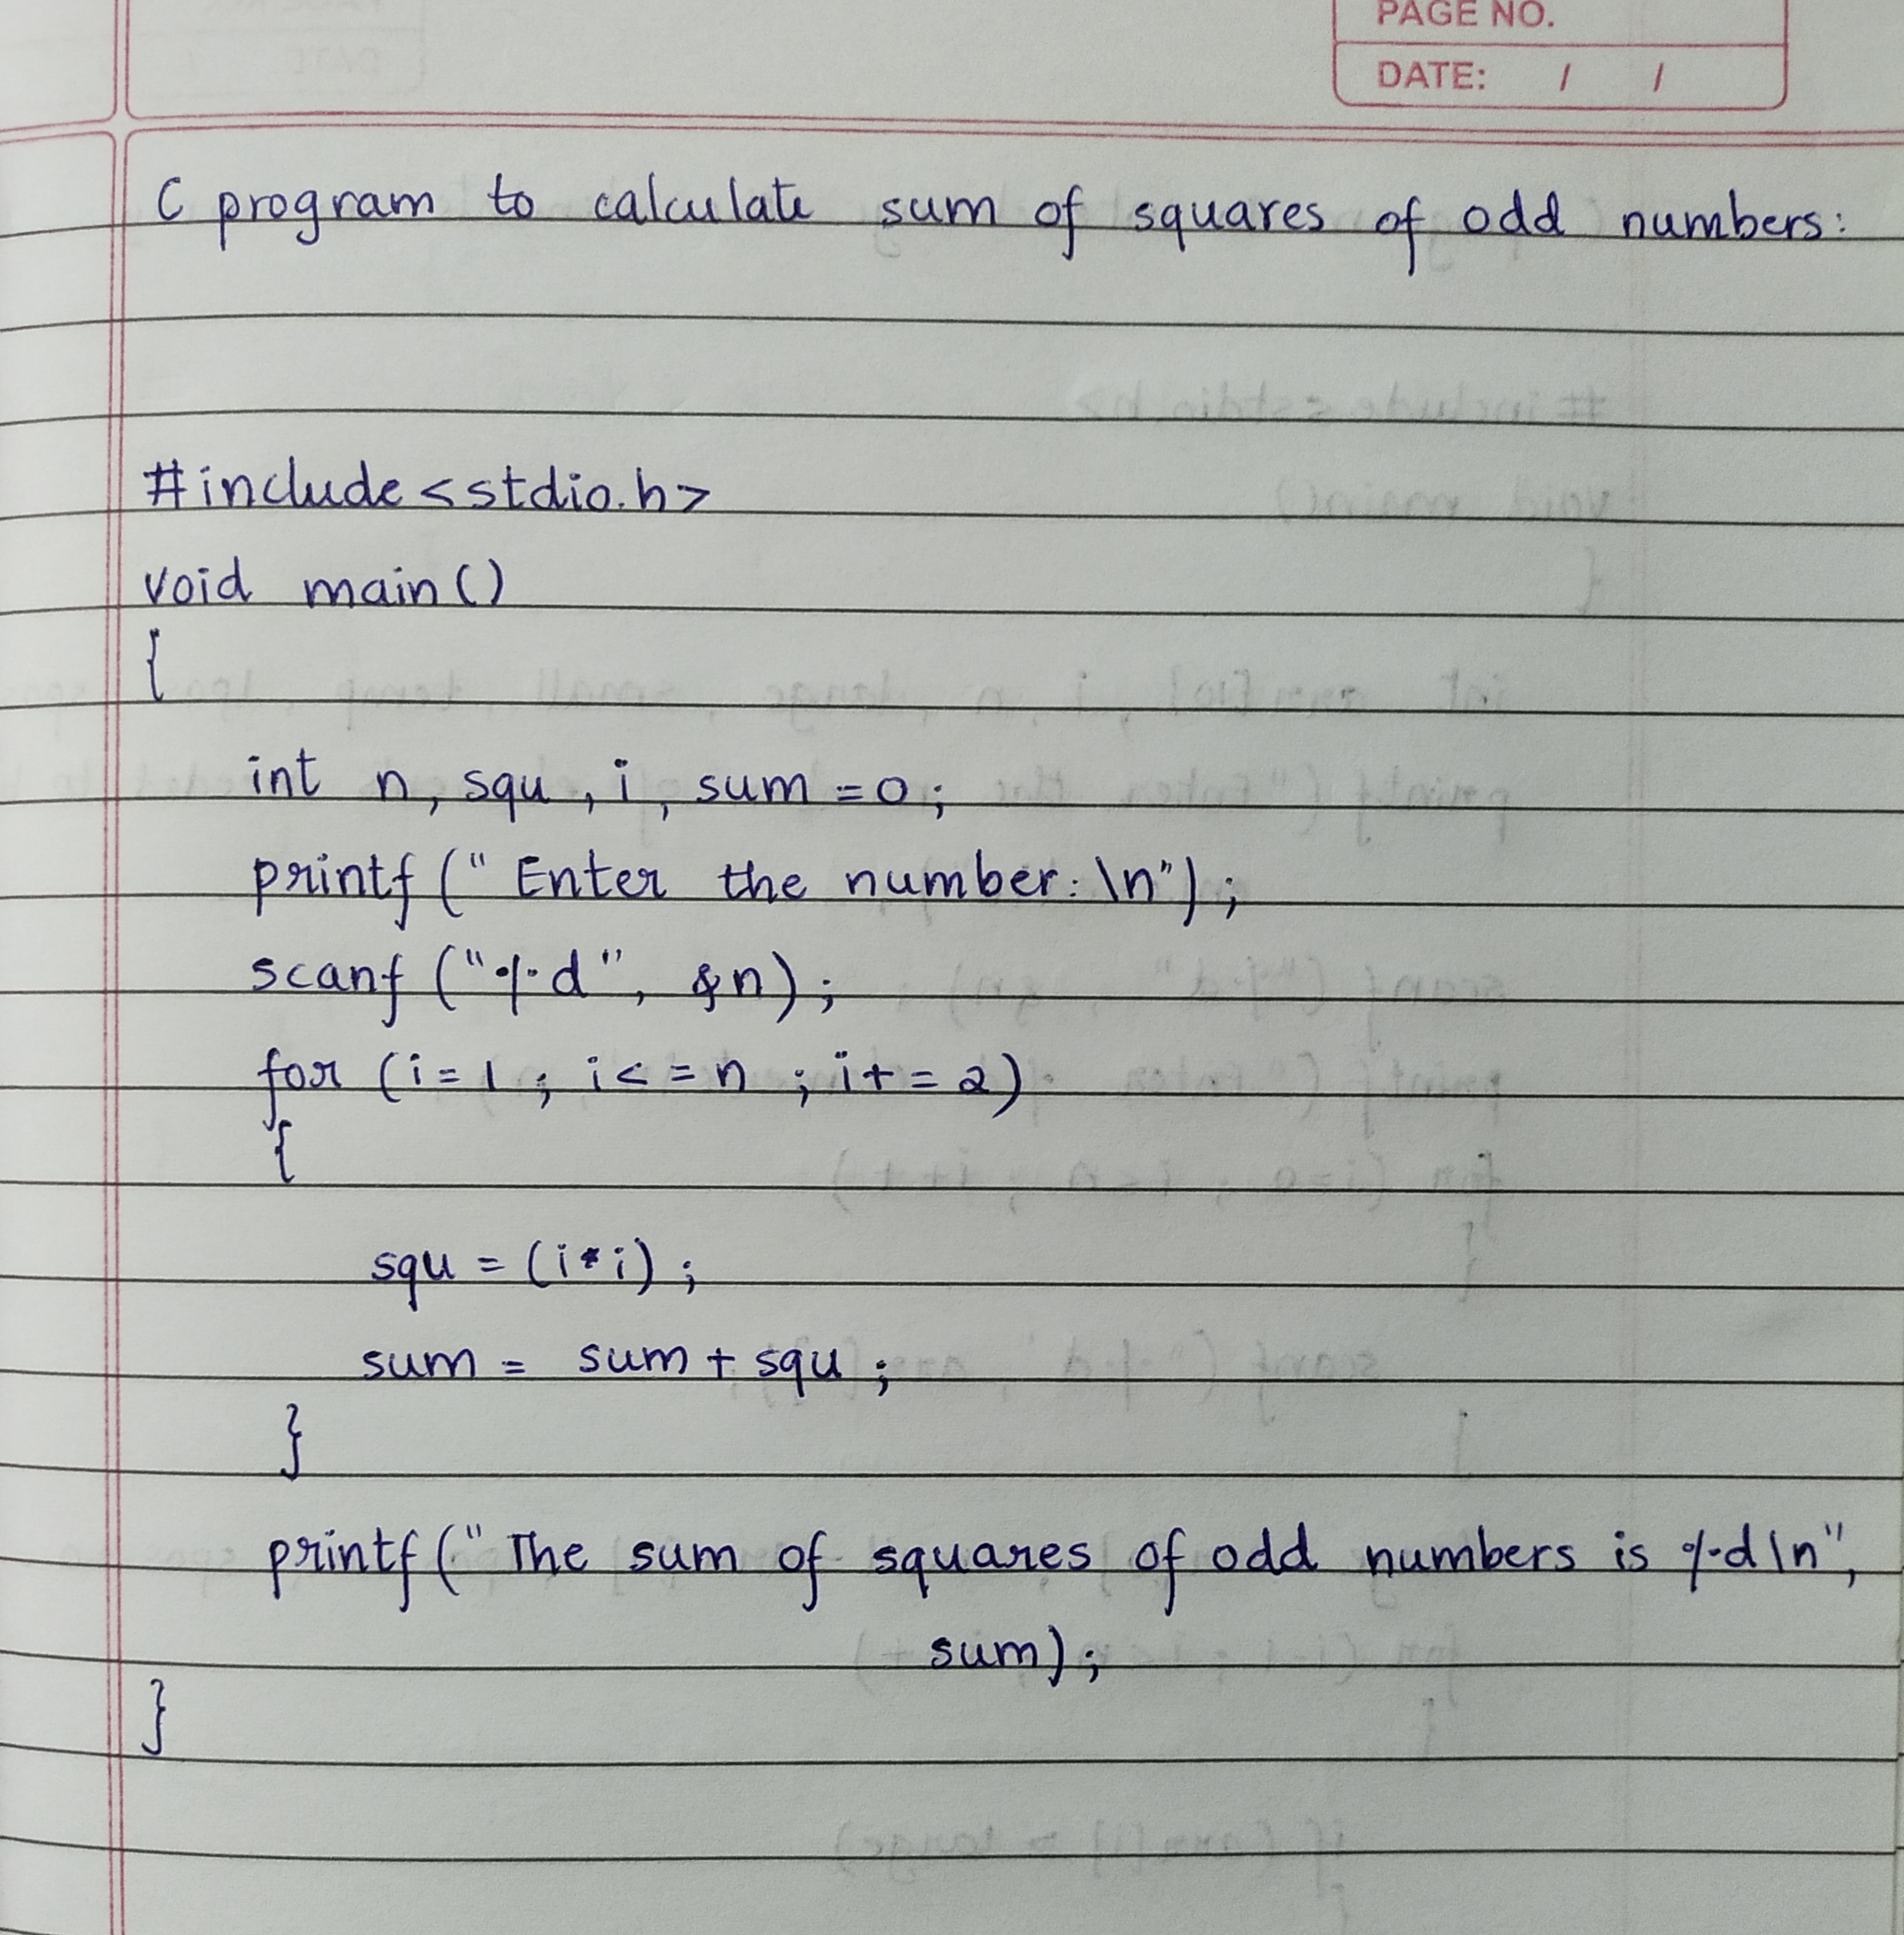 PAGE NO.
DATE: / /
C program to calculate sum of squares of odd numbers:
#include<stdio.h>
void main()
{
int n, squ, i, sum=0;
printf("Enter the number:\n");
scanf("%d", &n);
for (i=1; i<=n; i+=2)
{
squ = (i*i);
sum = sum + squ;
}
printf("The sum of squares of odd numbers is %d\n",
sum);
}